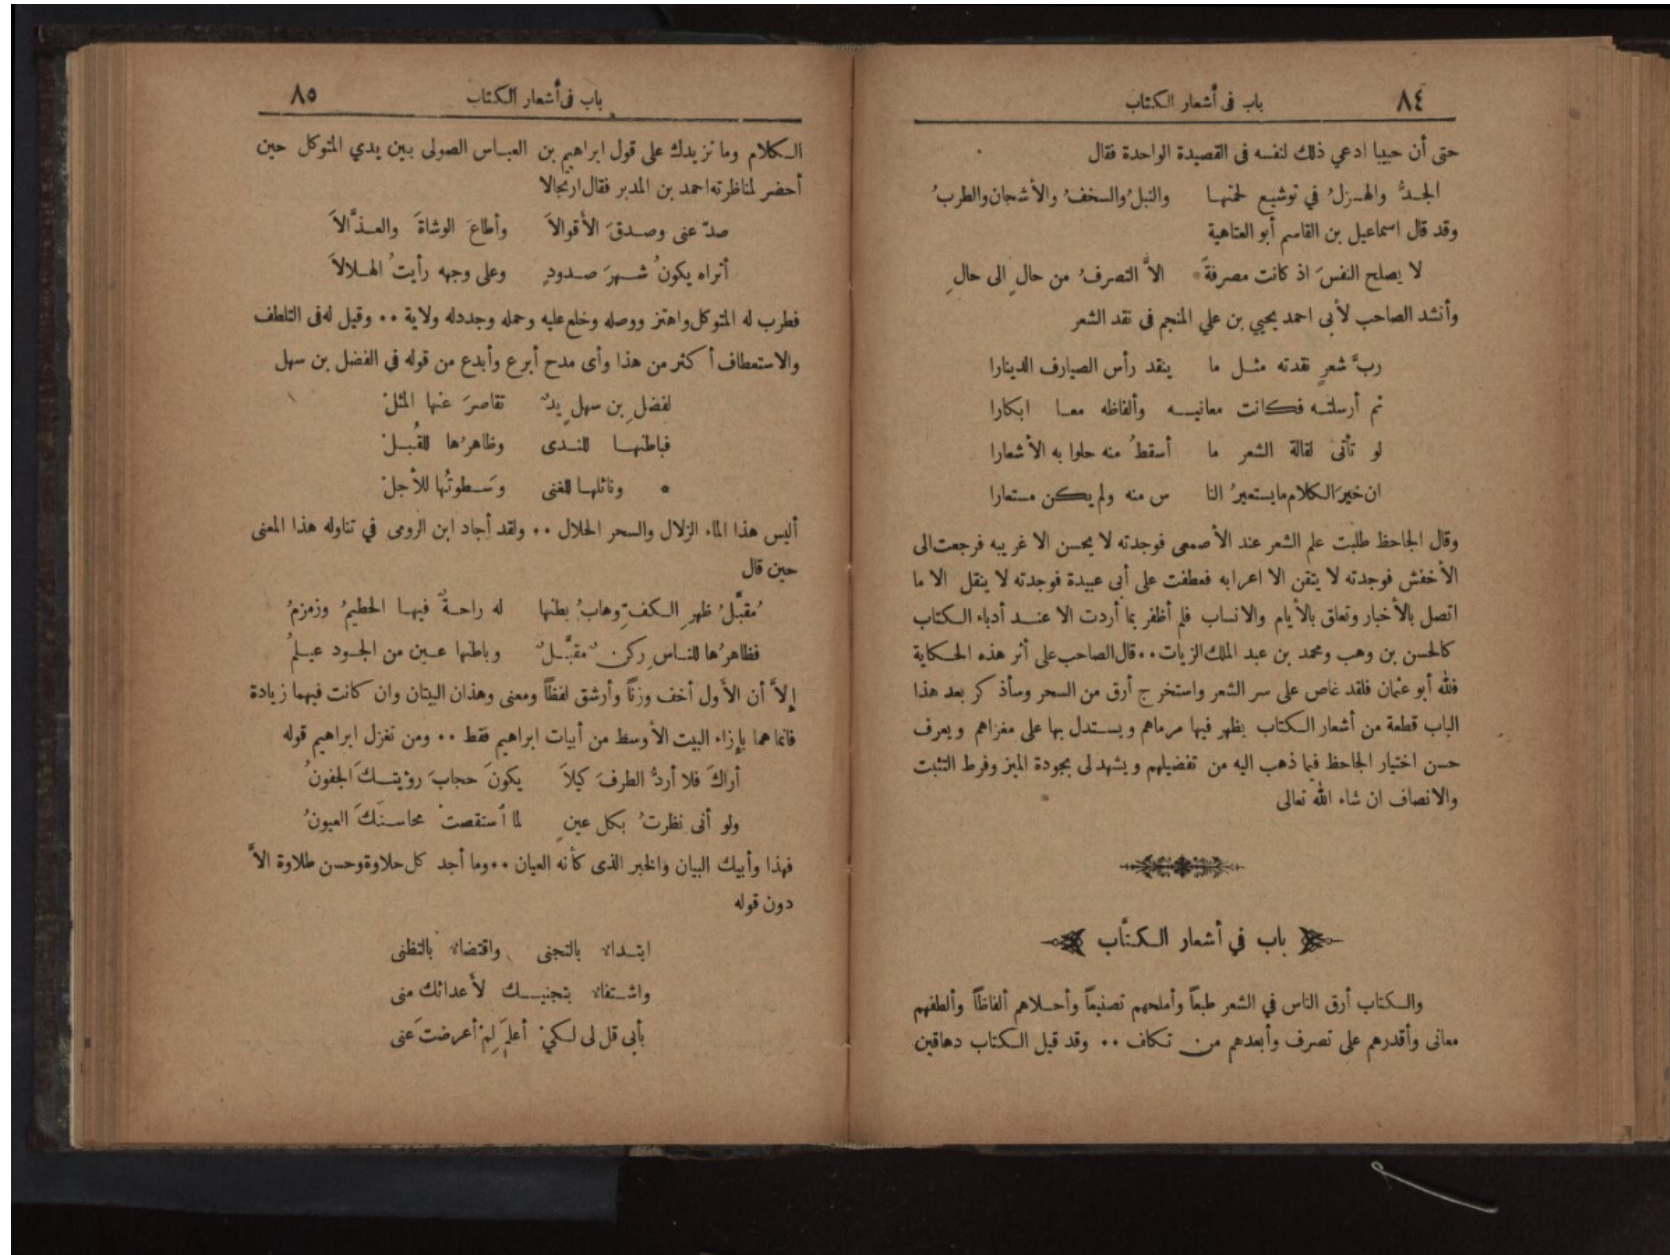 ٨٤ باب فى أشعار الكتاب
حتى أن حبيبا ادعي ذلك لنفسه فى القصيدة الواحدة فقال
الجـدُّ والهـزلُ في توشيع لحمتهـا والنبلُ والسخفُ والأشجان والطربُ
وقد قال اسماعيل بن القاسم أبو العتاهية
لا يصلح النفسَ اذ كانت مصرفةً الاَّ التصرفُ من حالٍ الى حالِ
وأنشد الصاحب لأبى احمد يحيي بن علي المنجم فى نقد الشعر
ربَّ شعرٍ نقدته مثـل ما ينقد رأس الصيارف الدينارا
ثم أرسلتـه فكانت معانيـه وألفاظه معـا ابكارا
لو تأتى لقالة الشعر ما أسقطُ منه حلوا به الأشعارا
ان خيرَ الكلام ما يستعيرُ النا س منه ولم يكن مستعارا
وقال الجاحظ طلبت علم الشعر عند الأصمعى فوجدته لا يحسن الا غريبه فرجعت الى
الأخفش فوجدته لا يتقن الا اعرابه فعطفت على أبى عبيدة فوجدته لا ينقل الا ما
اتصل بالأخبار وتعلق بالأيام والانساب فلم أظفر بما أردت الا عنـد أدباء الـكتاب
كالحسن بن وهب ومحمد بن عبد الملك الزيات ٠٠ قال الصاحب على أثر هذه الحـكاية
فلله أبو عثمان فلقد غاص على سر الشعر واستخرج أرق من السحر وسأذكر بعد هذا
الباب قطعة من أشعار الـكتاب يظهر فيها مرماهم ويسـتدل بها على مغزاهم ويعرف
حسن اختيار الجاحظ فيما ذهب اليه من تفضيلهم ويشهد لى بجودة الميز وفرط التثبت
والانصاف ان شاء الله تعالى
باب في أشعار الـكتَّاب
والـكتاب أرق الناس في الشعر طبعاً وأملحهم تصنيعاً وأحـلاهم ألفاظاً وألطفهم
معانى وأقدرهم على تصرف وأبعدهم من تـكلف ٠٠ وقد قيل الـكتاب دهاقين
باب فى أشعار الكتاب ٨٥
الـكلام وما نزيدك على قول ابراهيم بن العبـاس الصولى بـين يدي المتوكل حين
أحضر لمناظرته احمد بن المدبر فقال ارتجالا
صدّ عنى وصـدقَ الأقوالاَ وأطاعَ الوشاةَ والعـذَّالاَ
أتراه يكونُ شـهرَ صـدودٍ وعلى وجهه رأيتُ الهـلالاَ
فطرب له المتوكل واهتز ووصله وخلع عليه وحمله وجدد له ولاية ٠٠ وقيل له فى التلطف
والاستعطاف أكثر من هذا وأى مدح أبرع وأبدع من قوله في الفضل بن سهل
لفضلِ بن سهلٍ يدٌ تقاصرَ عنها المثلْ
فباطنهـا للنـدى وظاهرُها للقُبـلْ
ونائلهـا للغنى وسَـطوتُها للأجلْ
أليس هذا الماء الزلال والسحر الحلال ٠٠ ولقد أجاد ابن الرومى في تناوله هذا المعنى
حين قال
مُقبَّلُ ظهرِ الـكفّ وهابُ بطنها له راحـةٌ فيهـا الحطيمُ وزمزمُ
فظاهرُها للنـاسِ ركنٌ مقبَّـلٌ وباطنها عـين من الجـود عيـلمُ
إلاَّ أن الأول أخف وزناً وأرشق لفظاً ومعنى وهذان البيتان وان كانت فيهما زيادة
فانما هما بإزاء البيت الأوسط من أبيات ابراهيم فقط ٠٠ ومن تغزل ابراهيم قوله
أراكَ فلا أردُّ الطرفَ كيلاَ يكونَ حجابَ رؤيتـكَ الجفونُ
ولو أنى نظرتُ بكل عينٍ لما استقصتْ محاسـنَكَ العيونُ
فهذا وأبيك البيان والخبر الذى كأنه العيان ٠٠ وما أجد كل حلاوة وحسن طلاوة الاَّ
دون قوله
ابتـداءٌ بالتجنى واقتضاءٌ بالتظنى
واشـتفاءٌ بتجنيـك لأعدائك منى
بأبى قل لى لـكيْ أعلمَ لِمْ أعرضتَ عنى